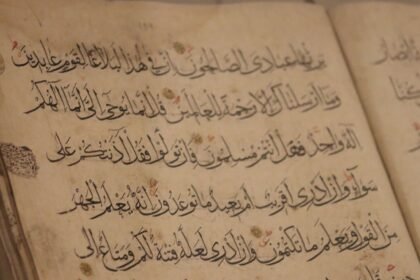 يرثها عبادى الصالحون ان فى هذا لبلاغا لقوم عابدين
وما ارسلناك الا رحمة للعالمين قل انما يوحى الى انما الهكم
اله واحد فهل انتم مسلمون فان تولوا فقل آذنتكم على
سواء وان ادرى اقريب ام بعيد ما توعدون انه يعلم الجهر
من القول ويعلم ما تكتمون وان ادرى لعله فتنة لكم ومتاع الى